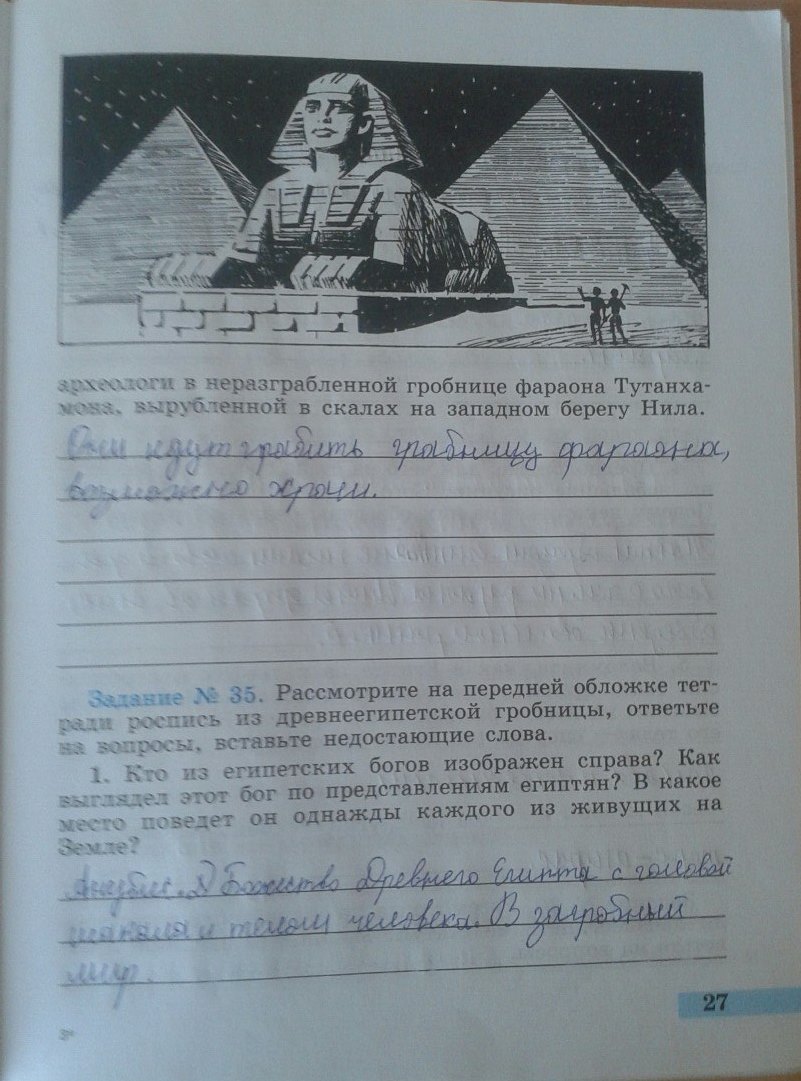 археологи в неразграбленной гробнице фараона Тутанха-
мона, вырубленной в скалах на западном берегу Нила.
Они идут грабить грабницу фараона,
возможно Храни.
Задание № 35. Рассмотрите на передней обложке тет-
ради роспись из древнеегипетской гробницы, ответьте
на вопросы, вставьте недостающие слова.
1. Кто из египетских богов изображен справа? Как
выглядел этот бог по представлениям египтян? В какое
место поведет он однажды каждого из живущих на
Земле?
Анубис. Божество Древнего Египта с головой
шакала и телом человека. В загробный
мир.
27
3*